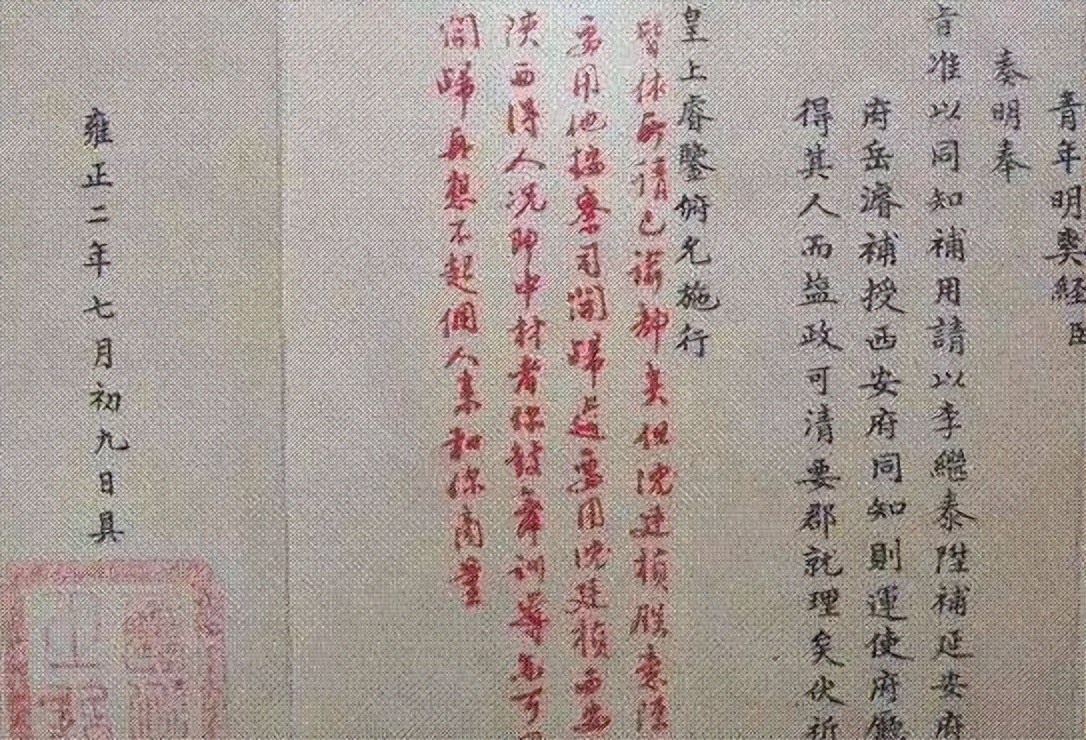 青年明爽經
奏明奉
旨准以同知補用請以李繼泰陞補延安府
府岳濬補授西安府同知則運使府廳
得其人而塩政可清要郡就理矣伏祈
皇上睿鑒俯允施行
皆依所請已諭部矣但沈廷楨朕意
要用他按察司 要用沈廷楨西安
陝西得人况即中材者你鼓舞訓導 可
歸真想不起個人來和你商量
雍正二年七月初九日具